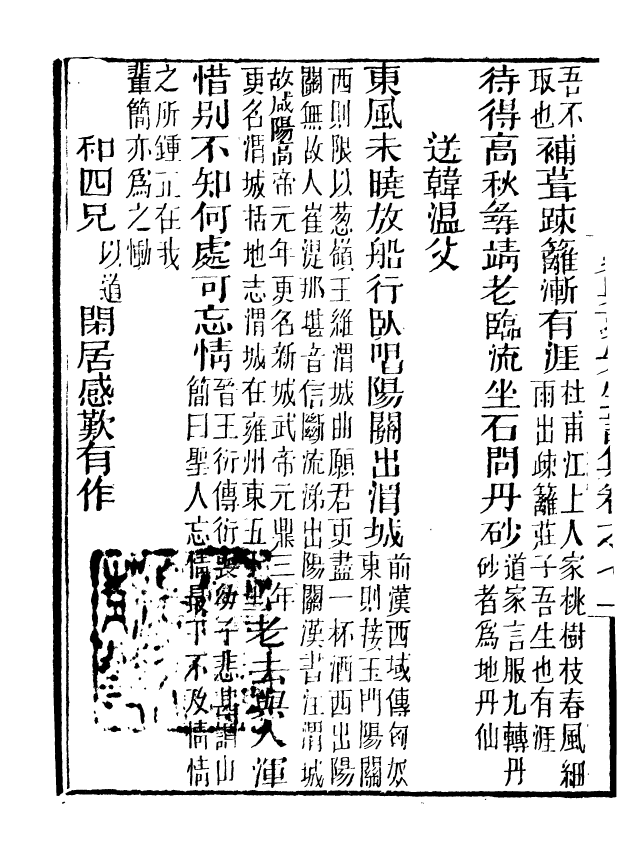 吾不
取也
補葺踈籬漸有涯
杜甫江上人家桃樹枝春風細
雨出踈籬莊子吾生也有涯
待得高秋彜靖老臨流坐石問丹砂
道家言服九轉丹
砂者為地丹仙
送韓温父
東風未曉放船行卧唱陽關出渭城
前漢西域傳匈奴
東則接玉門陽關
西則限以葱嶺王維渭城曲願君更盡一杯酒西出陽
關無故人崔湜那堪音信斷流涕出陽關漢書注渭城
故咸陽高帝元年更名新城武帝元鼎三年
更名渭城括地志渭城在雍州東五
老去與人渾
惜别不知何處可忘情
晉王衍傳衍喪幼子悲甚謂山
簡曰聖人忘情最下不及情情
之所鍾正在我
輩簡亦為之慟
和四兄以道閑居感歎有作